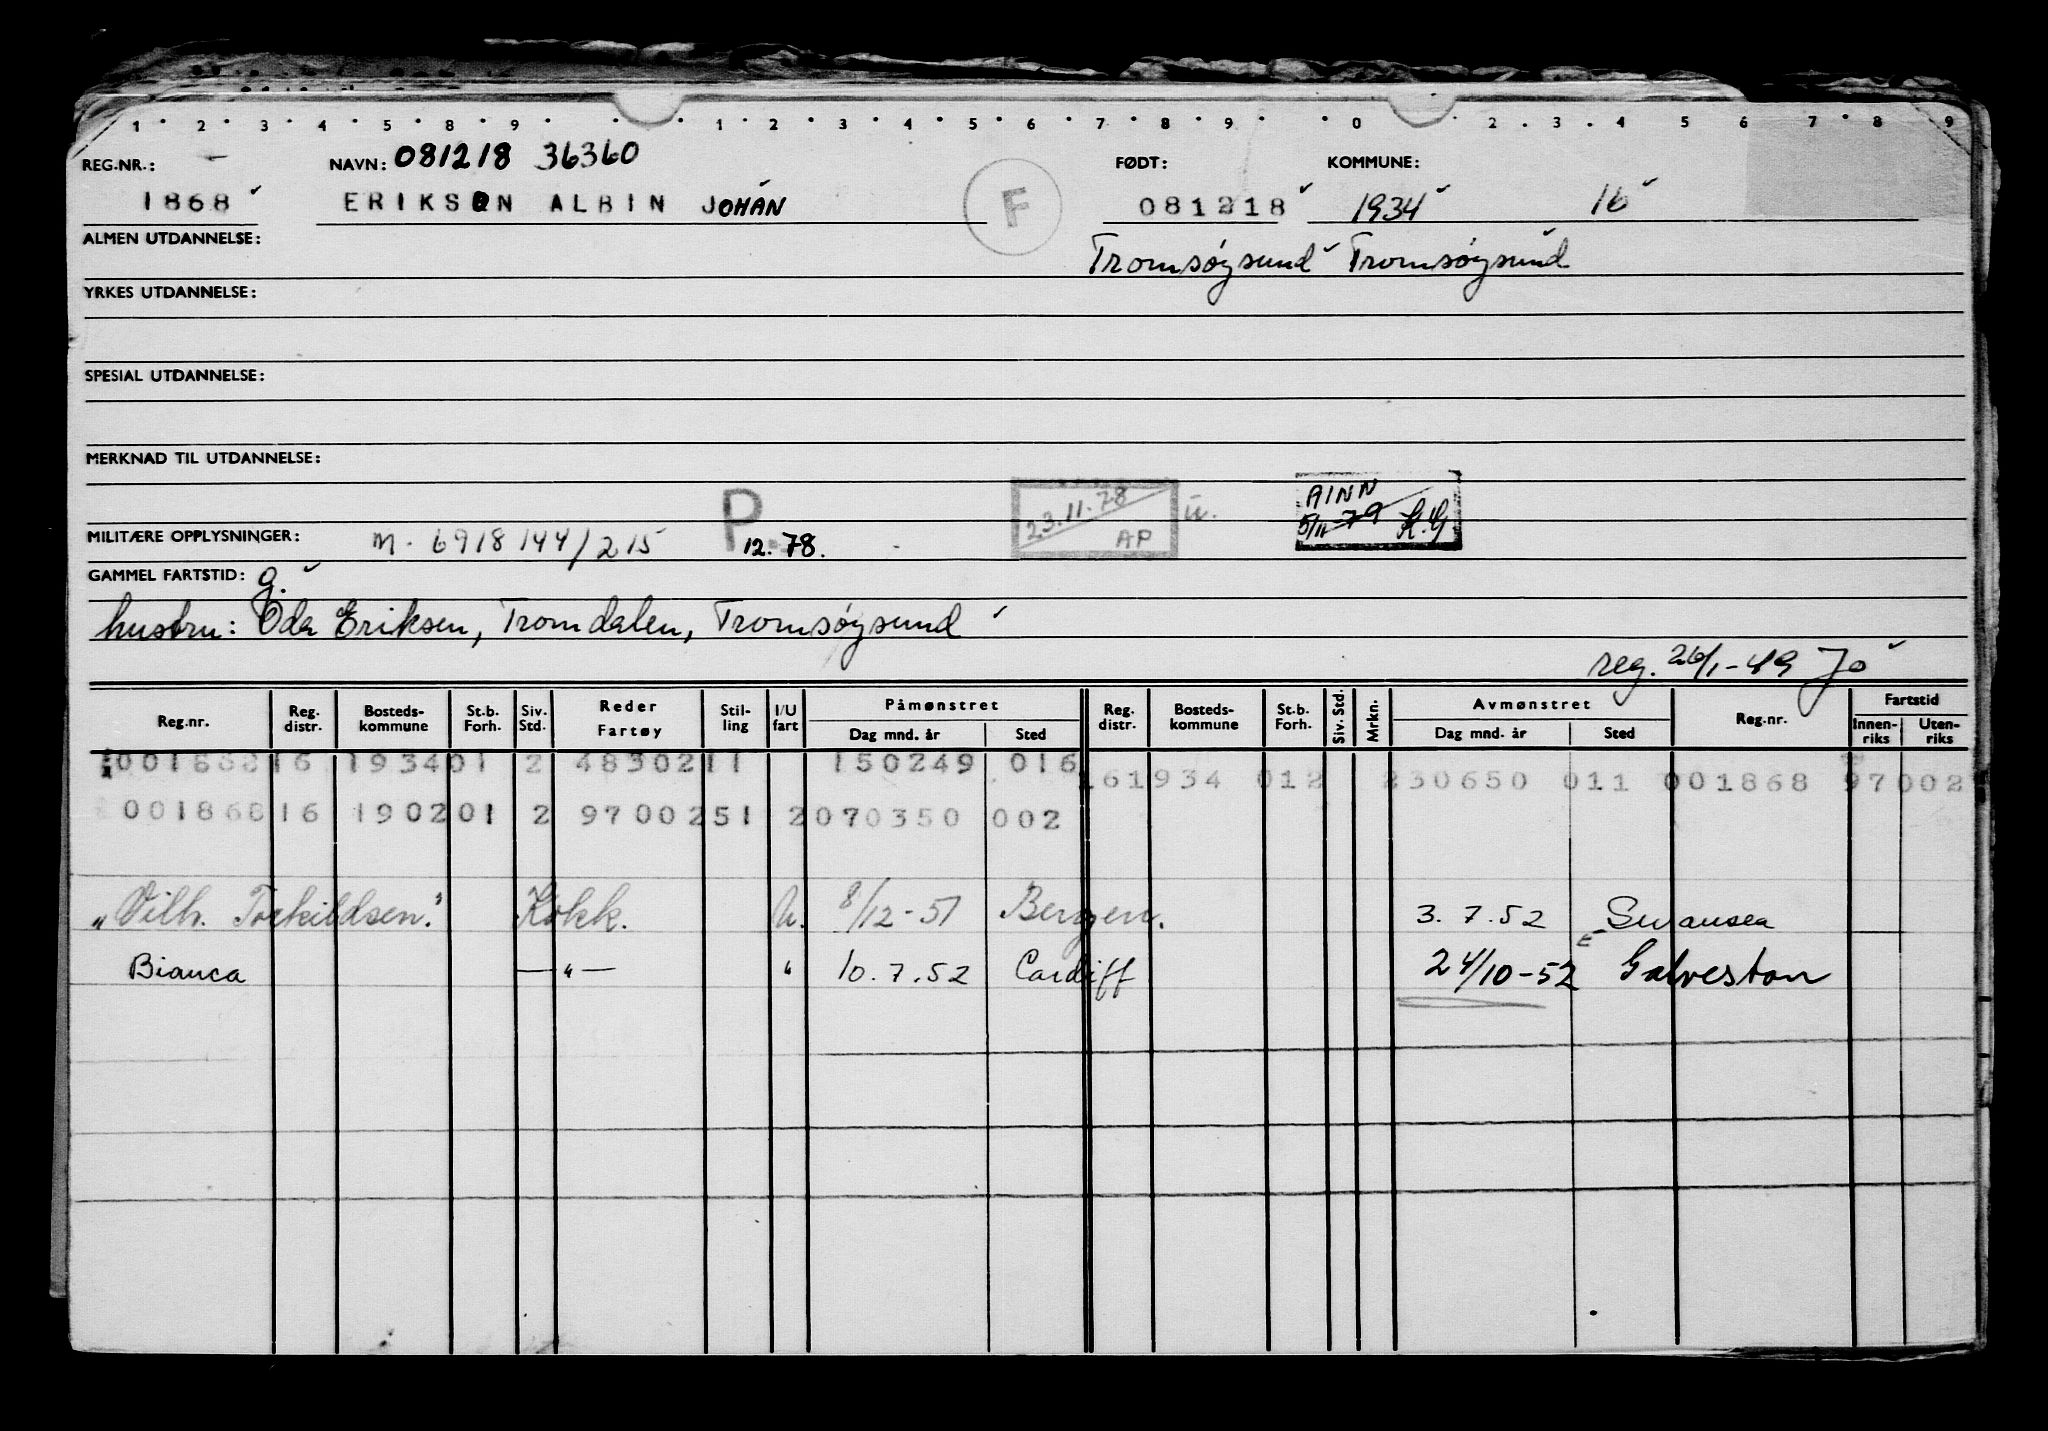 1 2 3 4 5 8 9 1 2 3 4 5 6 7 8 9 0 2 3 4 5 6 7 8 9
REG.NR.: NAVN: 081218 36360 FØDT: KOMMUNE:
1868 ERIKSEN ALBIN JOHAN F 081218 1934 16
ALMEN UTDANNELSE: Tromsøysund Tromsøysund
YRKES UTDANNELSE:
SPESIAL UTDANNELSE:
MERKNAD TIL UTDANNELSE:
P 23.11.78 AP u. AINN 5/11-79 H.G
MILITÆRE OPPLYSNINGER: m. 6918144/215 12.78.
GAMMEL FARTSTID: g.
hustru: Oda Eriksen, Tromdalen, Tromsøysund
reg. 26/1-49 Jo
Reg.nr. Reg. distr. Bosteds-kommune St.b. Forh. Siv. Std. Reder Fartøy Stil-ling I/U fart Påmønstret Dag mnd. år Sted Reg. distr. Bosteds-kommune St.b. Forh. Siv. Std. Mrkn. Avmønstret Dag mnd. år Sted Reg.nr. Fartstid Innen-riks Uten-riks
001868 16 1934 01 2 4830211 150249 016 161934 012 230650 011 001868 97002
001868 16 1902 01 2 9700251 2 070350 002
"Vilh. Torkildsen." Kokk. U. 8/12-51 Bergen. 3.7.52 Swansea
Bianca —"— " 10.7.52 Cardiff 24/10-52 Galveston